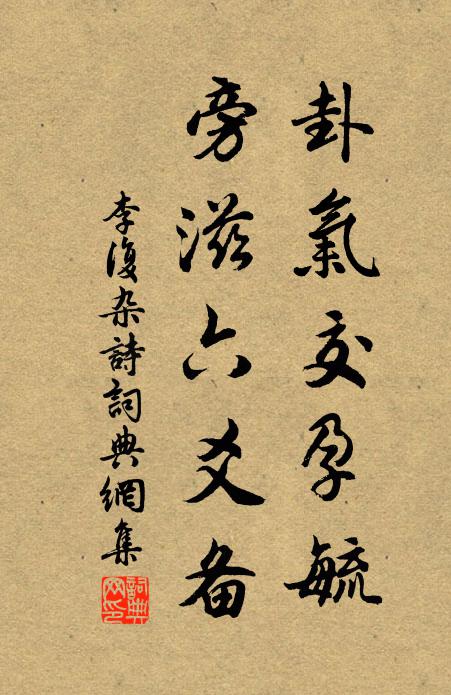 卦氣交孕毓
旁滋六爻备
李復杂詩詞典網集
詞典网印